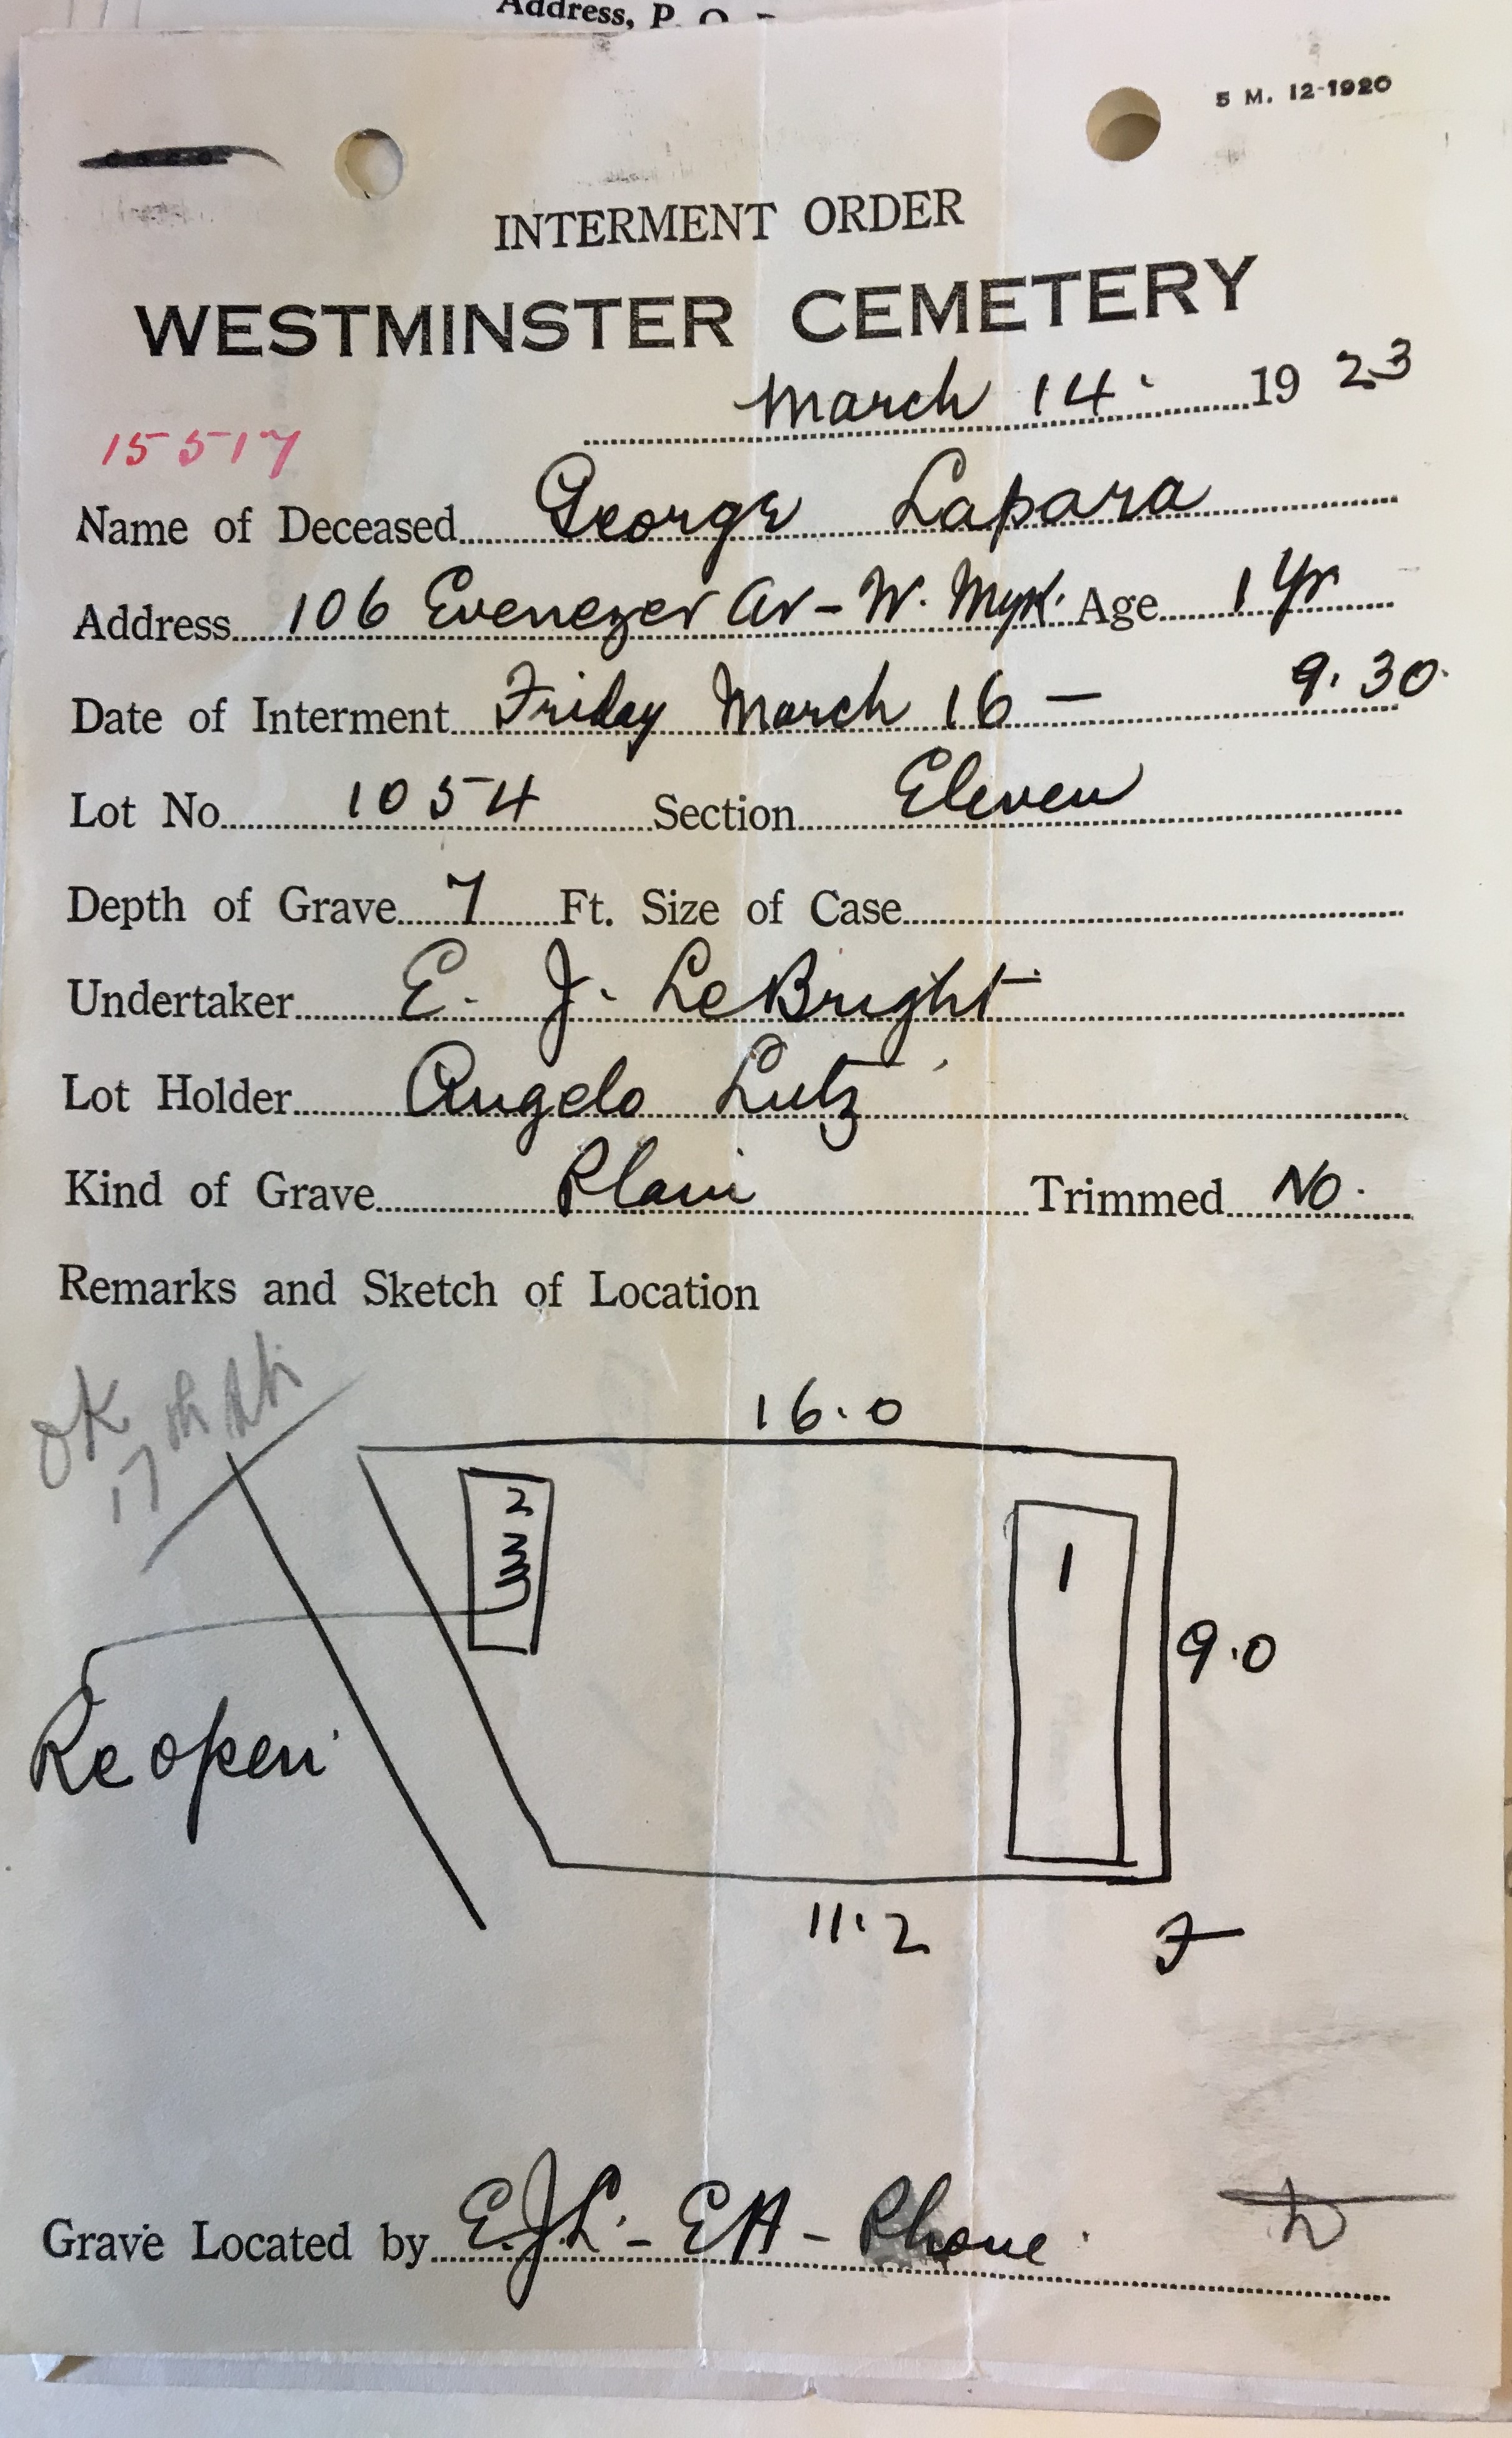 Address, P. O.
5 M. 12-1920
INTERMENT ORDER
WESTMINSTER CEMETERY
March 14. 19 23
15517
Name of Deceased George Lapara
Address 106 Evenezer Av - W. Myk. Age 1 Yr
Date of Interment Friday March 16 — 9.30.
Lot No. 1054 Section Eleven
Depth of Grave 7 Ft. Size of Case
Undertaker E. J. LeBright
Lot Holder Angelo Lutz
Kind of Grave Plain Trimmed No.
Remarks and Sketch of Location
OK
17
16.0
2
1
9.0
Reopen
11.2
Grave Located by E.J.L. - EH - Phone